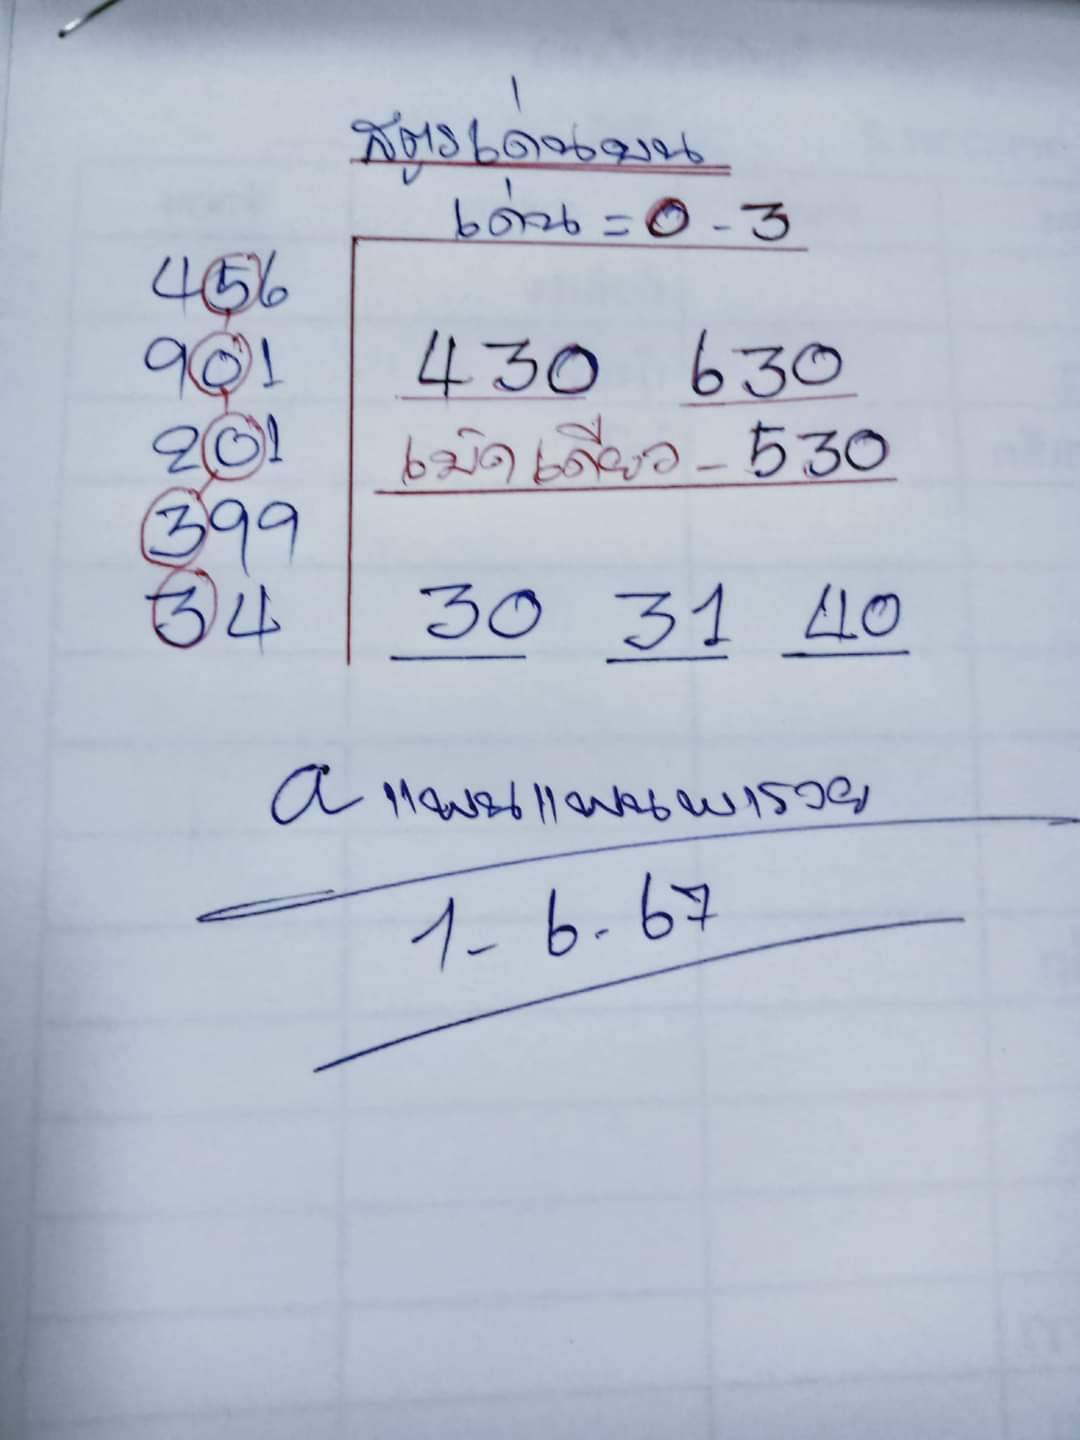 สูตรเด่นบน
เด่น = 0 - 3
456
901
201
399
34
430 630
เม็ดเดียว - 530
30 31 40
a แพนแพนพารวย
1 - 6 - 67